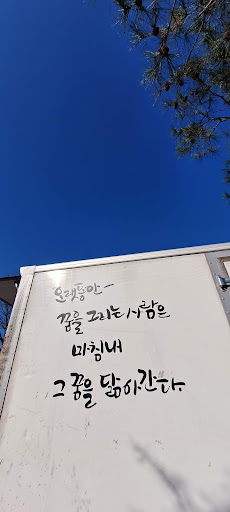 오랫동안-
꿈을 그리는 사람은
마침내
그 꿈을 닮아간다.